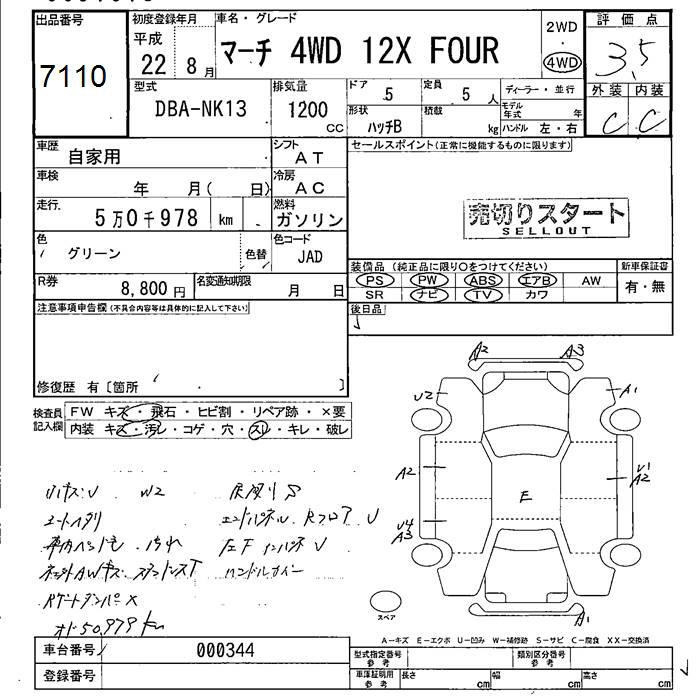 出品番号 初度登録年月 車名・グレード 2WD 評価点
7110 平成 22 8月 マーチ 4WD 12X FOUR ・ 4WD 3,5
型式 排気量 ドア 定員 ディーラー・並行 外装 内装
DBA-NK13 1200 cc 5 5 人 モデル年式 年 C C
形状 ハッチB 積載 kg ハンドル 左・右
車歴 自家用 シフト AT セールスポイント(正常に機能するものに限ります)
車検 年 月( 日) 冷房 AC
走行 5万0千978 km 燃料 ガソリン 売切りスタート
SELLOUT
色 グリーン 色替 色コード JAD
装備品 (純正品に限り○をつけてください) 新車保証書
R券 8,800円 名変通知期限 月 日 PS PW ABS エアB AW 有・無
SR ナビ TV カワ
注意事項申告欄(不具合内容等は具体的に記入して下さい) 後日品
修復歴 有〔箇所 〕
検査員記入欄 FW キズ・飛石・ヒビ割・リペア跡・×要
内装 キズ・汚レ・コゲ・穴・スレ・キレ・破レ
A2 A3
U2 A1
A2 U1 A2
E
U4 A3
A1
スペア
W2
ハンドルカバー
50,979 km
A-キズ E-エクボ U-凹み W-補修跡 S-サビ C-腐食 XX-交換済
車台番号 000344 型式指定番号 参考 類別区分番号 参考
登録番号 車庫証明用 参考 長さ cm 幅 cm 高さ cm